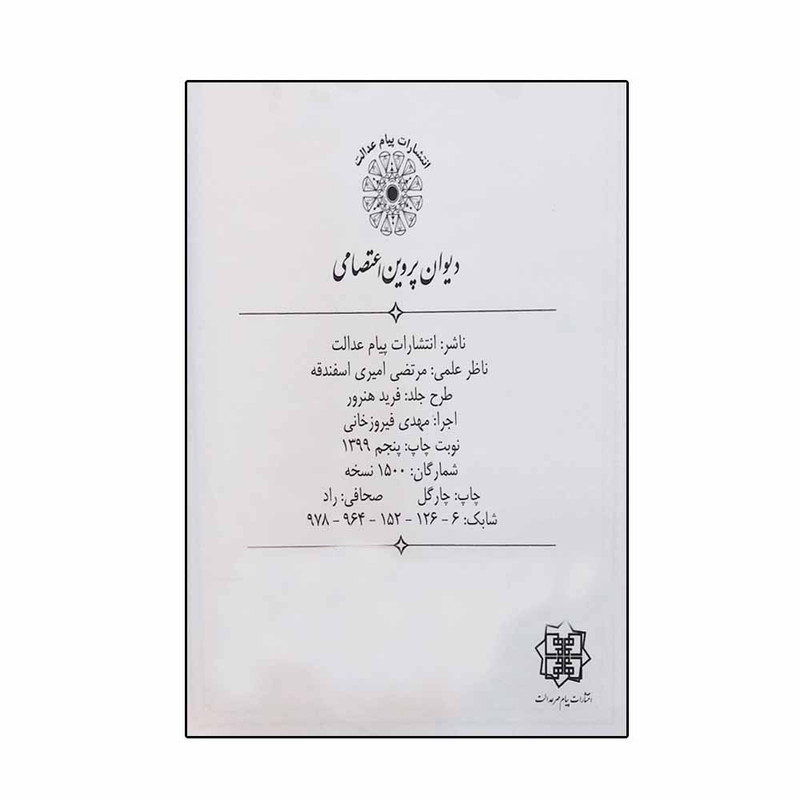 انتشارات پیام عدالت
دیوان پروین اعتصامی
ناشر: انتشارات پیام عدالت
ناظر علمی: مرتضی امیری اسفندقه
طرح جلد: فرید هنرور
اجرا: مهدی فیروزخانی
نوبت چاپ: پنجم ۱۳۹۹
شمارگان: ۱۵۰۰ نسخه
چاپ: چارگل صحافی: راد
شابک: ۶ - ۱۲۶ - ۱۵۲ - ۹۶۴ - ۹۷۸
انتشارات پیام مهر عدالت